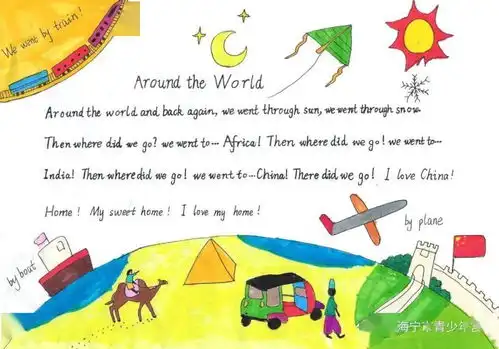 We went by train!
Around the World
Around the world and back again, we went through sun, we went through snow.
Then where did we go? we went to... Africa! Then where did we go! we went to...
India! Then where did we go! we went to...China! There did we go! I love China!
Home! My sweet home! I love my home!
by plane
by bout
海宁市青少年宫